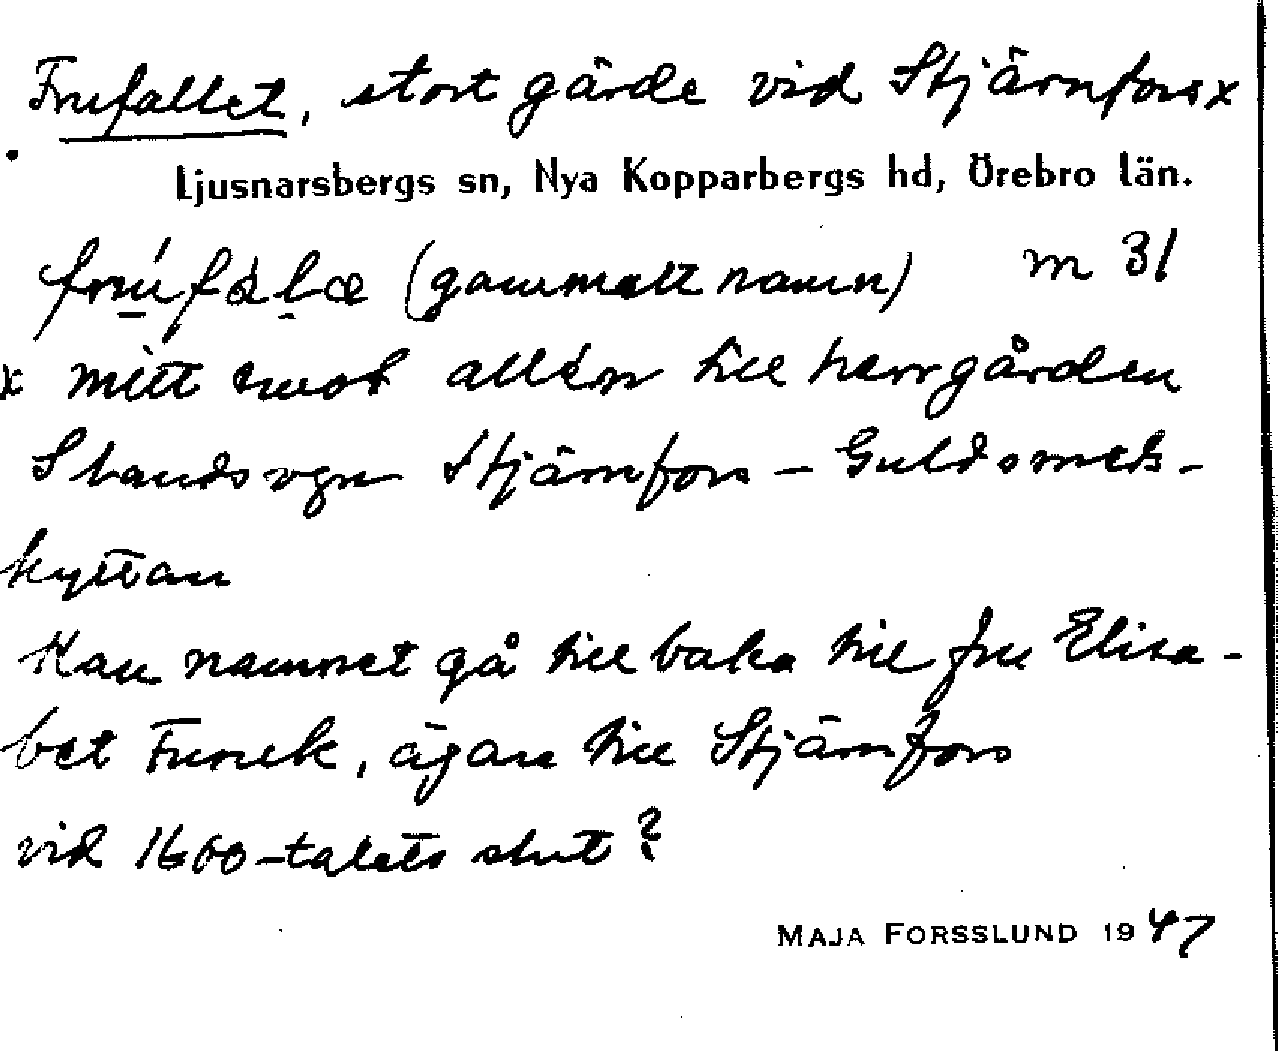 Frufallet, stort gärde vid Stjärnfors x
Ljusnarsbergs sn, Nya Kopparbergs hd, Örebro län.
(gammalt namn) m 31
x mitt emot allén till herrgården
S landsvgn Stjärnfors – Guldsmeds-
hyttan
Kan namnet gå tillbaka till fru Elisa-
bet Funck, ägare till Stjärnfors
vid 1600-talets slut?
MAJA FORSSLUND 1947